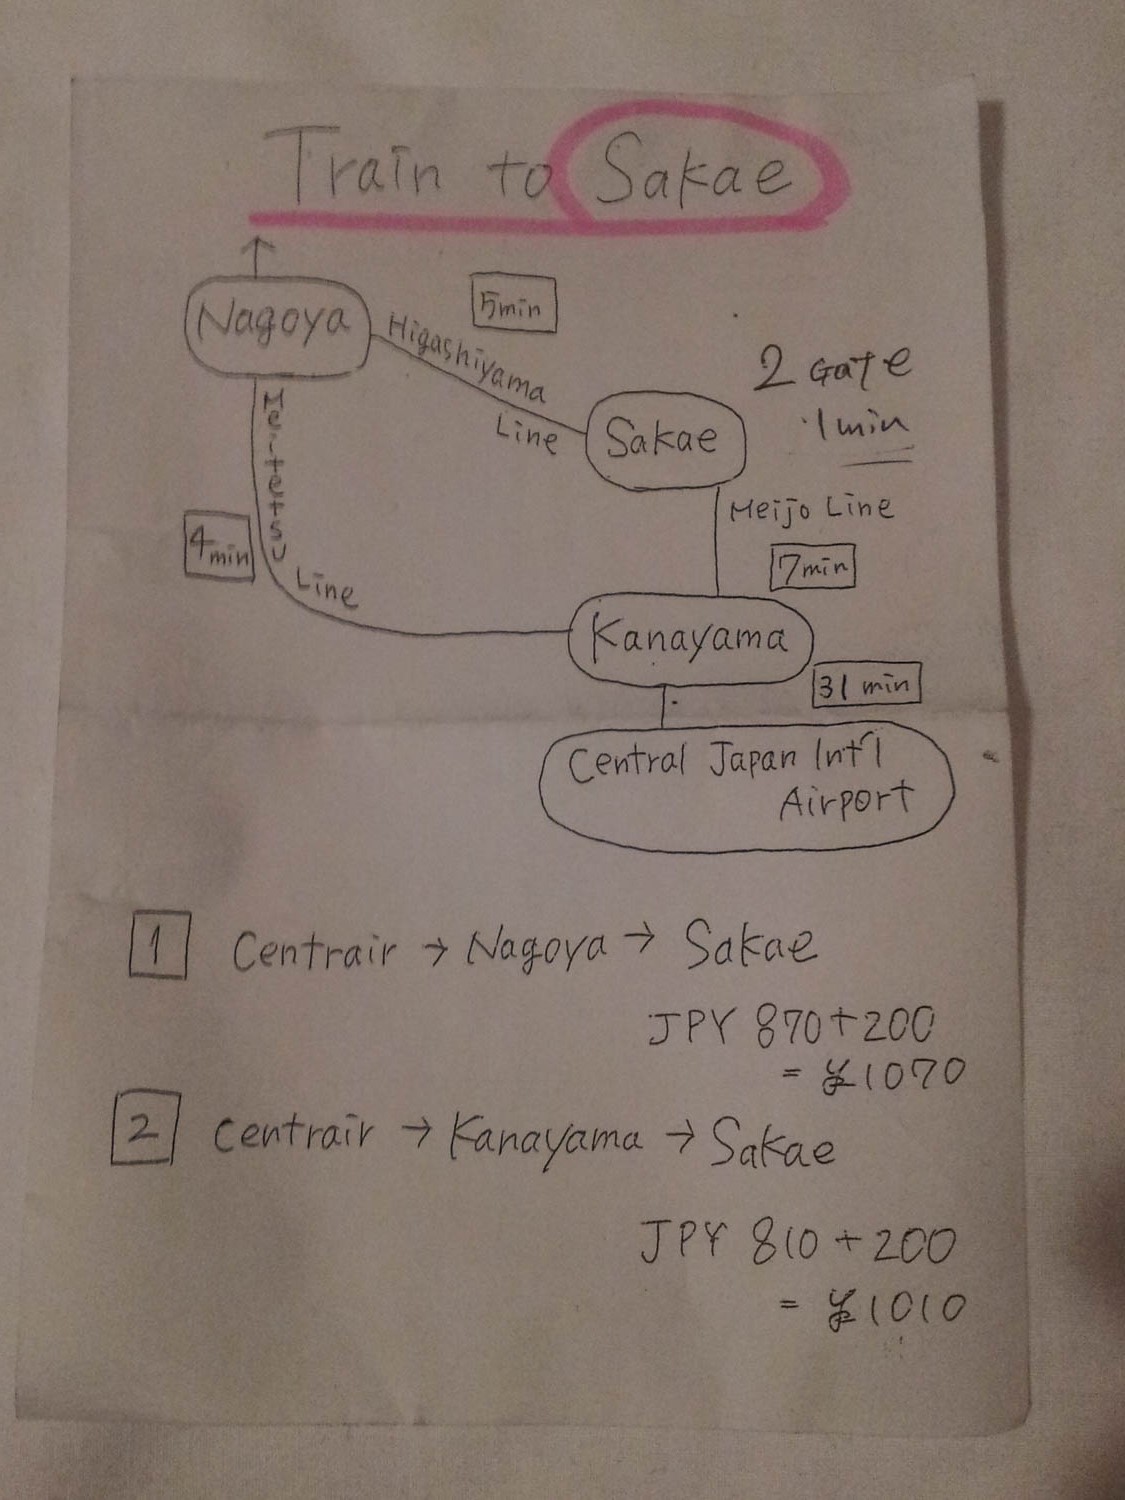 Train to Sakae
Nagoya
Higashiyama
Line
5min
2 GATE
1 min
Sakae
Meitetsu
Line
4min
Meijo Line
7min
Kanayama
31 min
Central Japan Int'l
Airport
1 Centrair → Nagoya → Sakae
JPY 870+200
= ¥1070
2 Centrair → Kanayama → Sakae
JPY 810 + 200
= ¥1010